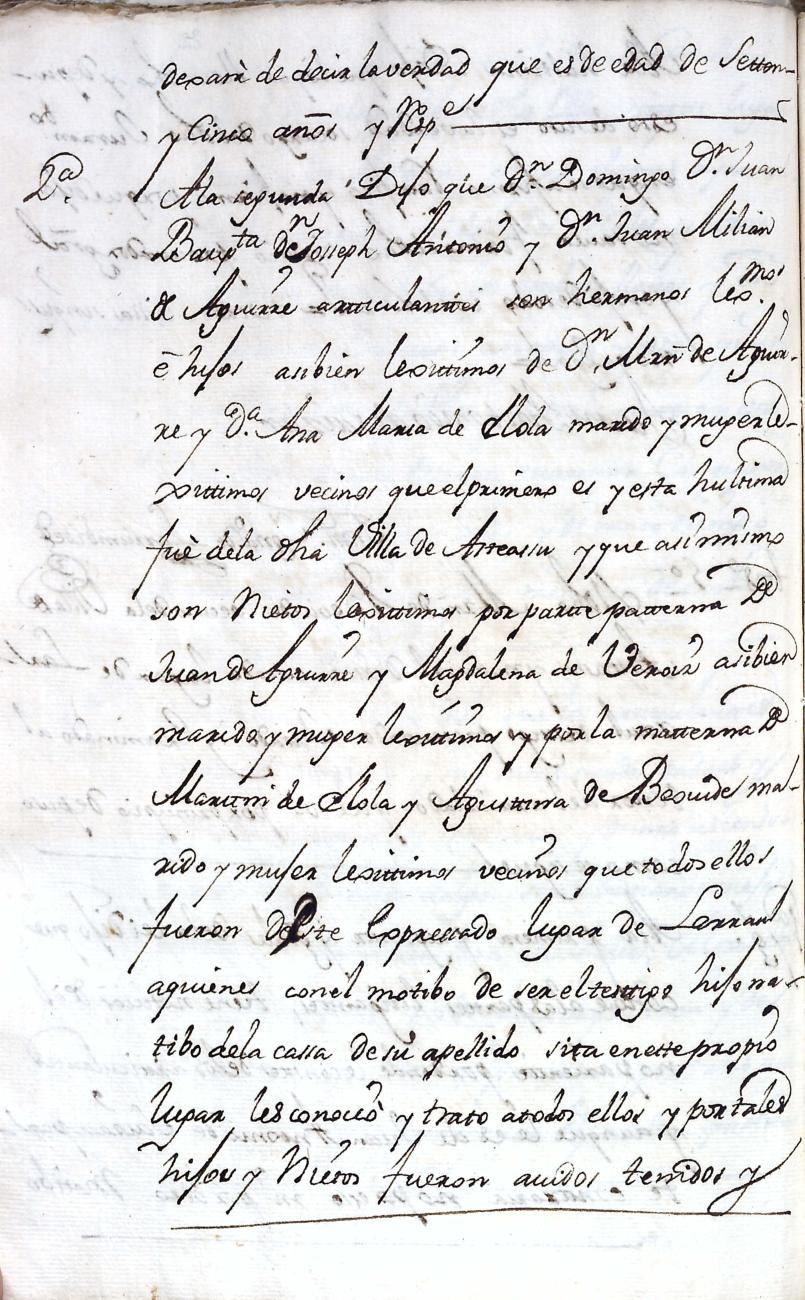 dexará de decir la verdad que es de edad de Setten-
y Cinco años y Resp.e
2.a
A la segunda Dijo que D.n Domingo D.n Juan
Baup.ta D.n Joseph Antonio y D.n Juan Milian
de Aguirre artticulanttes son hermanos lex.mos
é hijos asibien lexittimos de D.n Mrn de Aguir-
re y D.a Ana Maria de Olola marido y muger le-
xittimos vecinos que el primero es y esta hultima
fué de la dha Villa de Atteassu y que asimismo
son Nietos lexittimos por partte patterna de
Juan de Aguirre y Magdalena de Veroiz asibien
marido y muger lexittimos y por la matterna de
Martin de Olola y Agusttina de Beguide ma-
rido y mujer lexittimos vecinos que todos ellos
fueron deeste expressado lugar de Larraul
a quienes con el motibo de ser el testtigo hijo na-
tibo de la cassa de su apellido sita en estte propio
lugar les conoció y trato a todos ellos y por tales
hijos y Nietos fueron auidos tenidos y